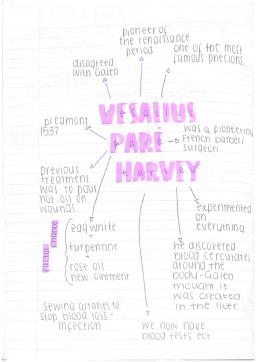 pioneer of
the renaissance
period
one of the most
famous phecions
disagreed
with Galen
VESALIUS
PARÉ
HARVEY
piedmont
1537
was a pioneering
French barber/
surgeon
previous
treatment
was to pour
hot oil on
wounds
experimented
on
everything
egg white
+
turpentine
+
rose oil
new ointment
He discovered
blood circulates
around the
body - Galen
thought it
was created
in the liver
sewing arteries to
stop blood loss -
infection
we now have
blood tests ect.